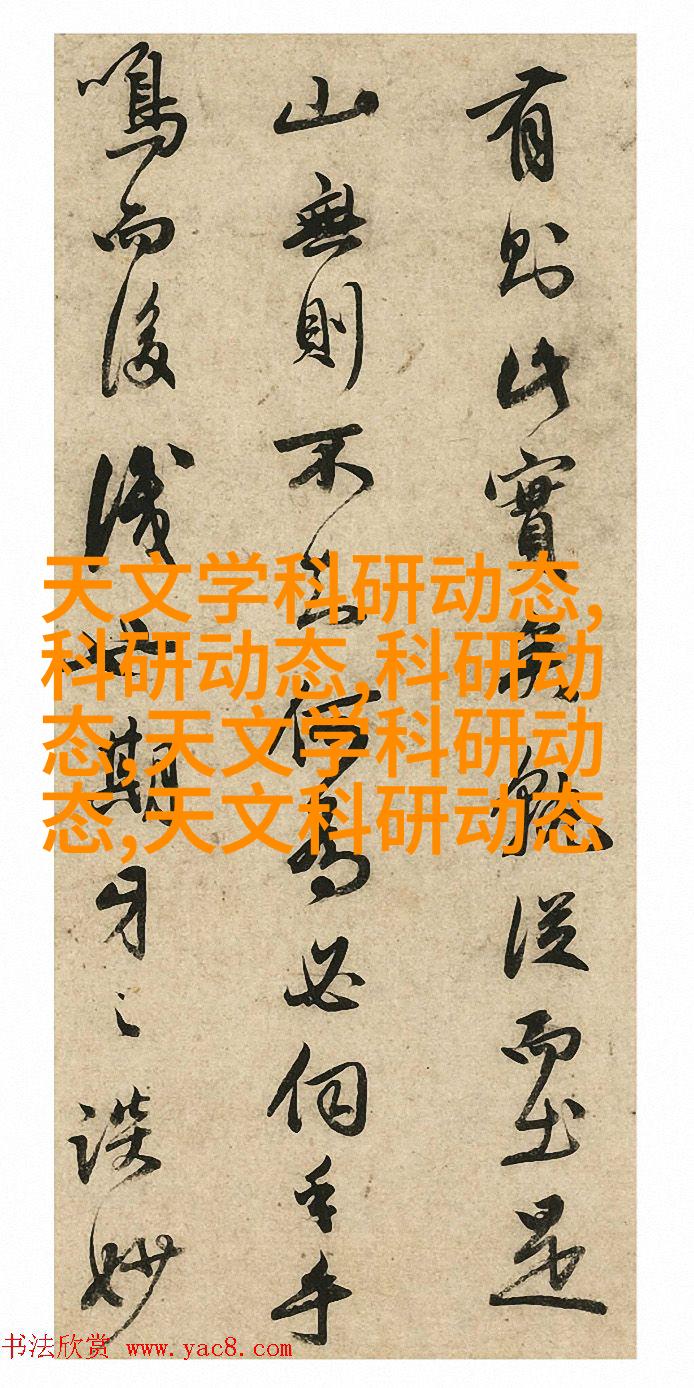 有則此實從而土是
山無則不何為必伺手
鳴而後識期牙之談妙
天文学科研动态,
科研动态,科研动
态,天文学科研动
态,天文科研动态
书法欣赏 www.yac8.com